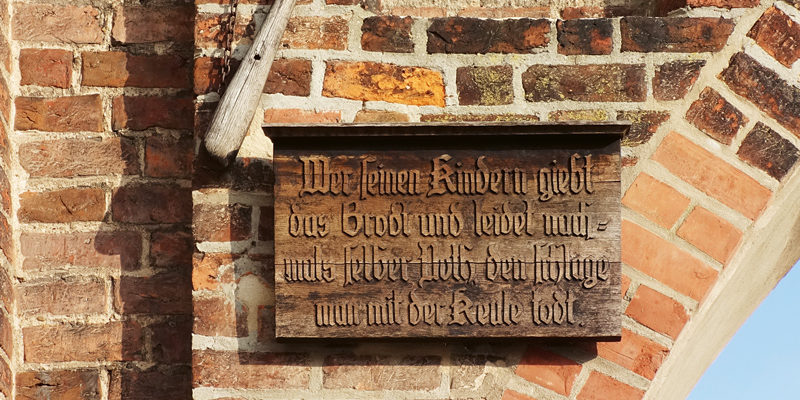 Wer seinen Kindern giebt
das Brodt und leidet nach-
mals selber Noth den schlage
man mit der Keule todt.